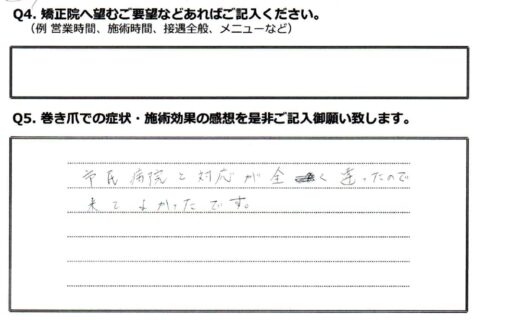 Q4. 矯正院へ望むご要望などあればご記入ください。
（例 営業時間、施術時間、接遇全般、メニューなど）
Q5. 巻き爪での症状・施術効果の感想を是非ご記入御願い致します。
市民病院と対応が全く違ったので
来てよかったです。